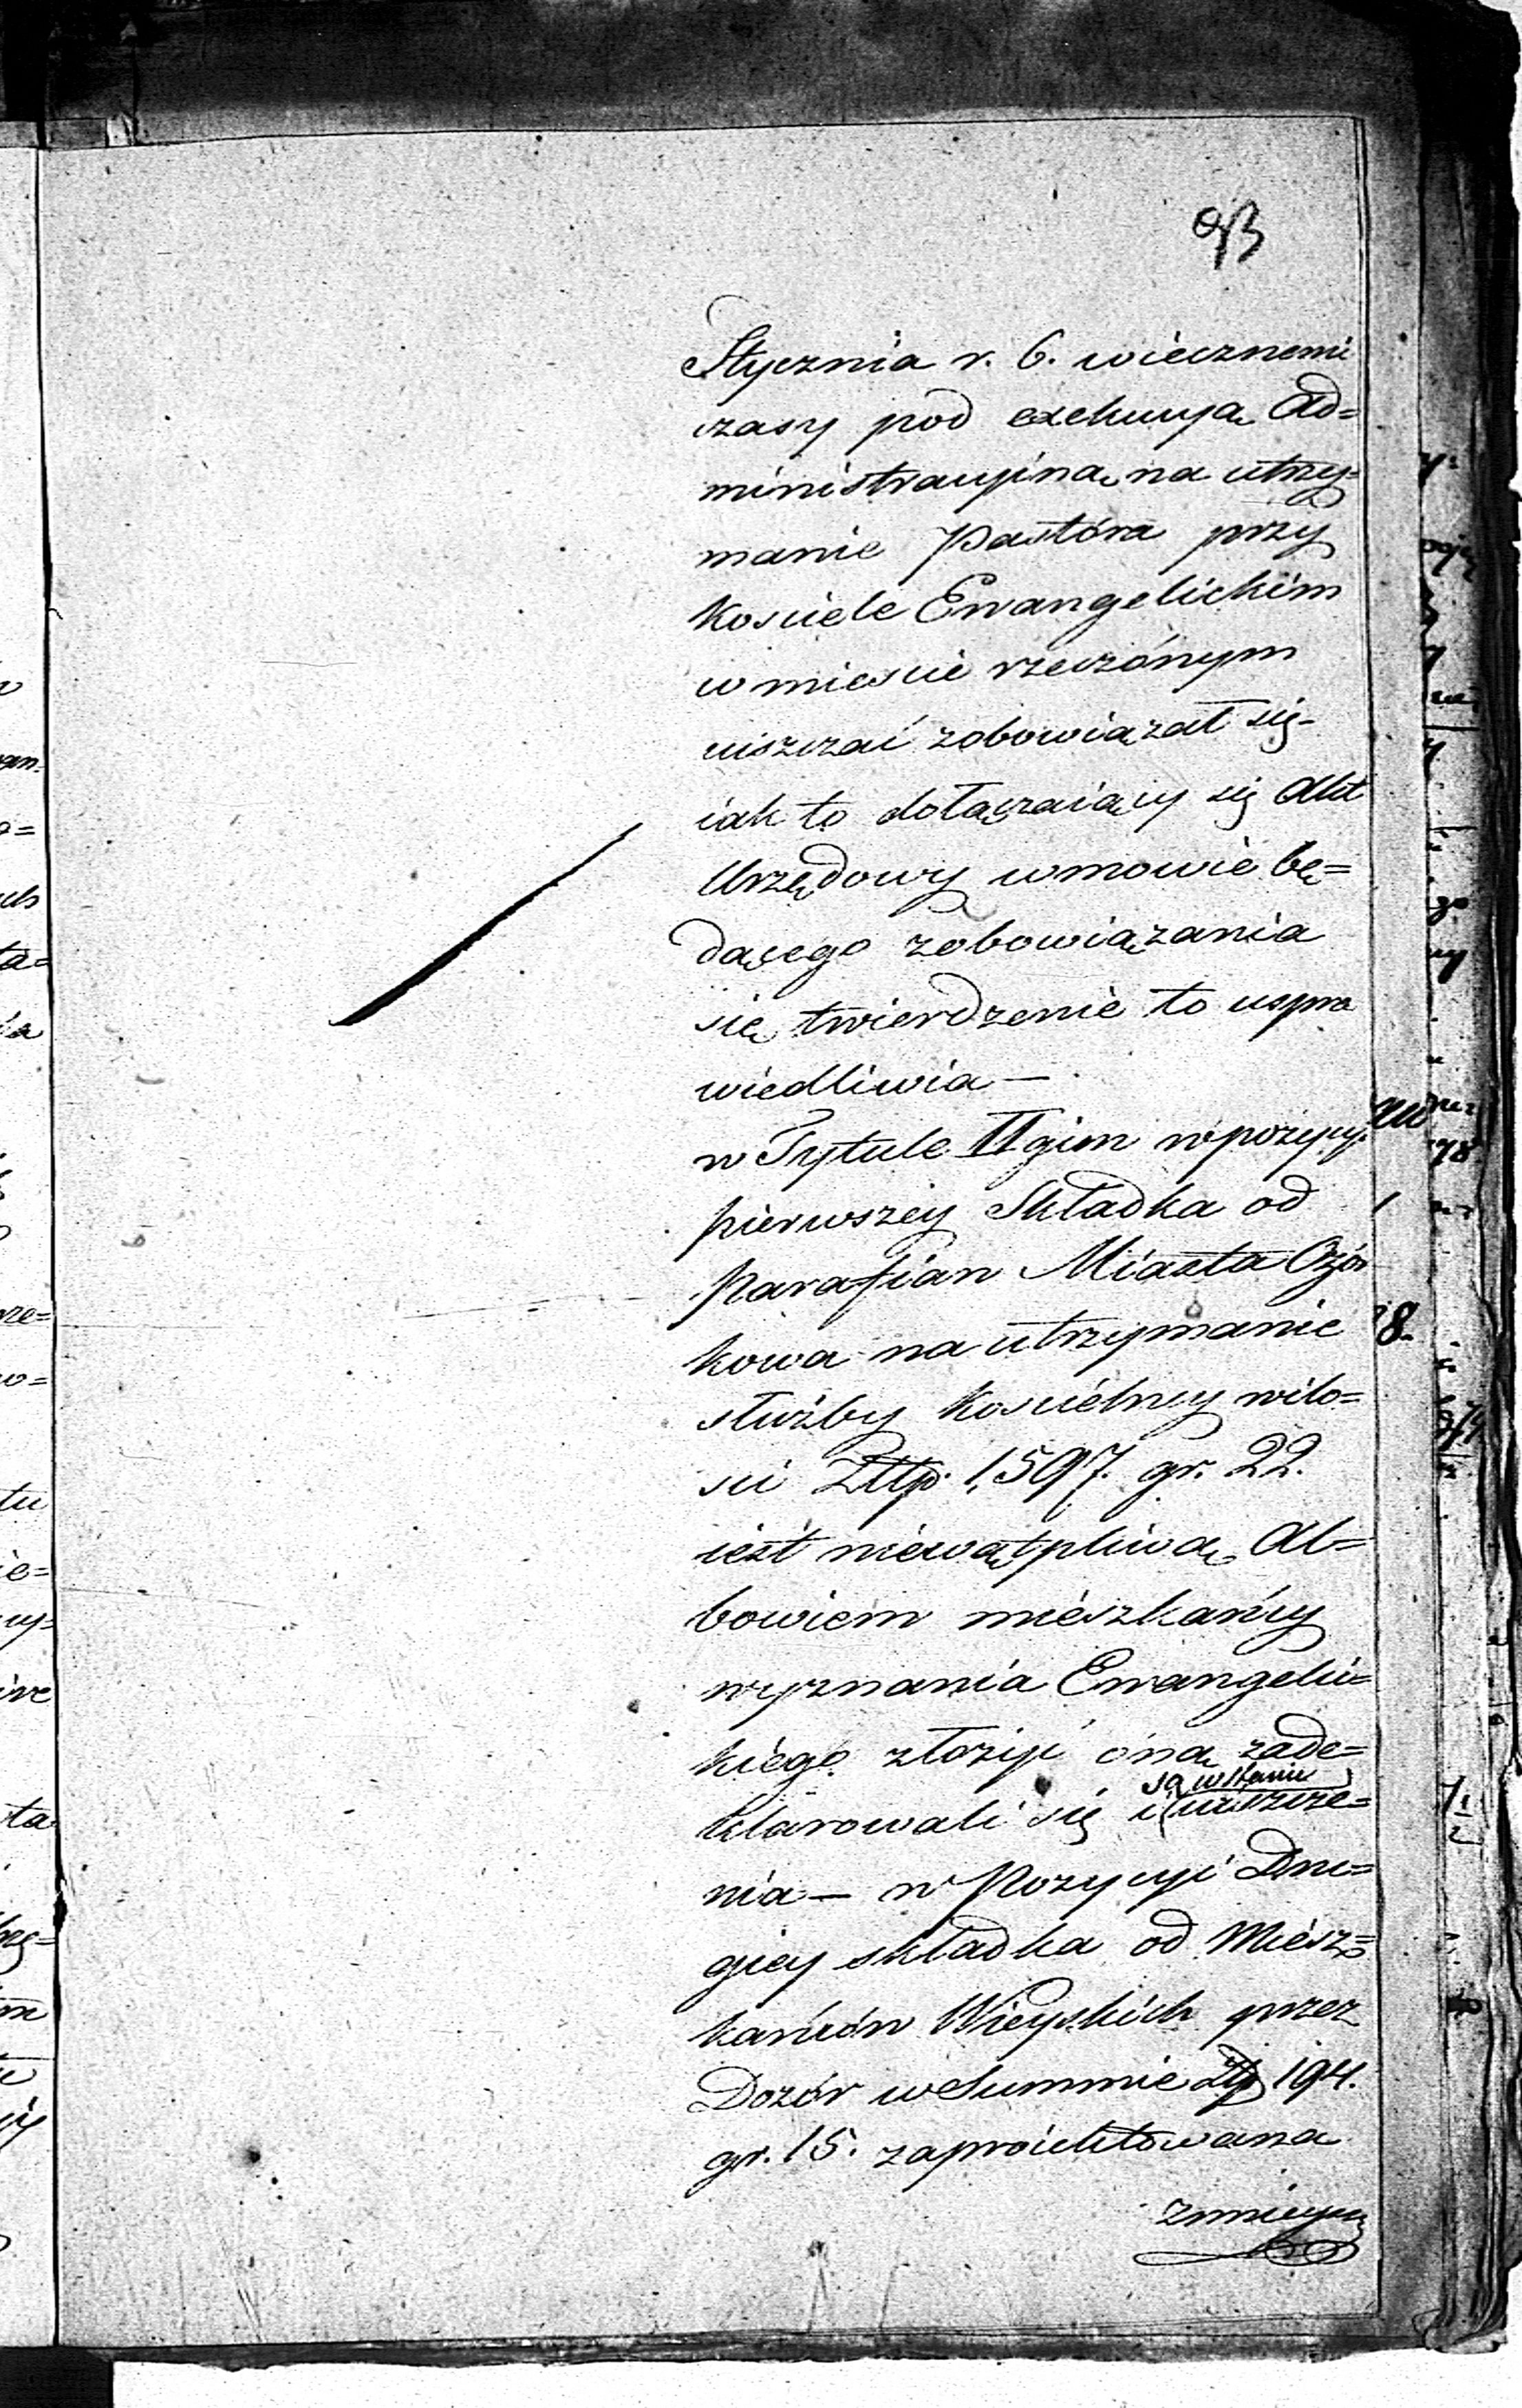 93
Stycznia r. b. wiecznemi
czasy pod exekucyą Ad=
ministracyiną na utrzy=
manie Pastóra przy
Kosciele Ewangelickim
w miescie rzeczónym
uiszczać zobowiązał się
iak to dołączaiący się Akt
Urzędowy w mowie bę=
dącego zobowiązania
się twierdzenie to uspra
wiedliwia —
w Tytule IIgim w pozycyi
pierwszey Składka od
Parafian Miasta Ozór
kowa na utrzymanie
służby Koscielney w ilo=
sci Złłp. 1,597. gr. 22.
iest niewątpliwą, Al=
bowiem mieszkańcy
wyznania Ewangelic=
kiego złożyć óną zade=
klarowali się i są w stanie uiszcze=
nia — w Pozycyi Dru=
giey składka od Miesz=
kańców Wieyskich przez
Dozór w Summie Złp 194.
gr. 15. zaproiektowana